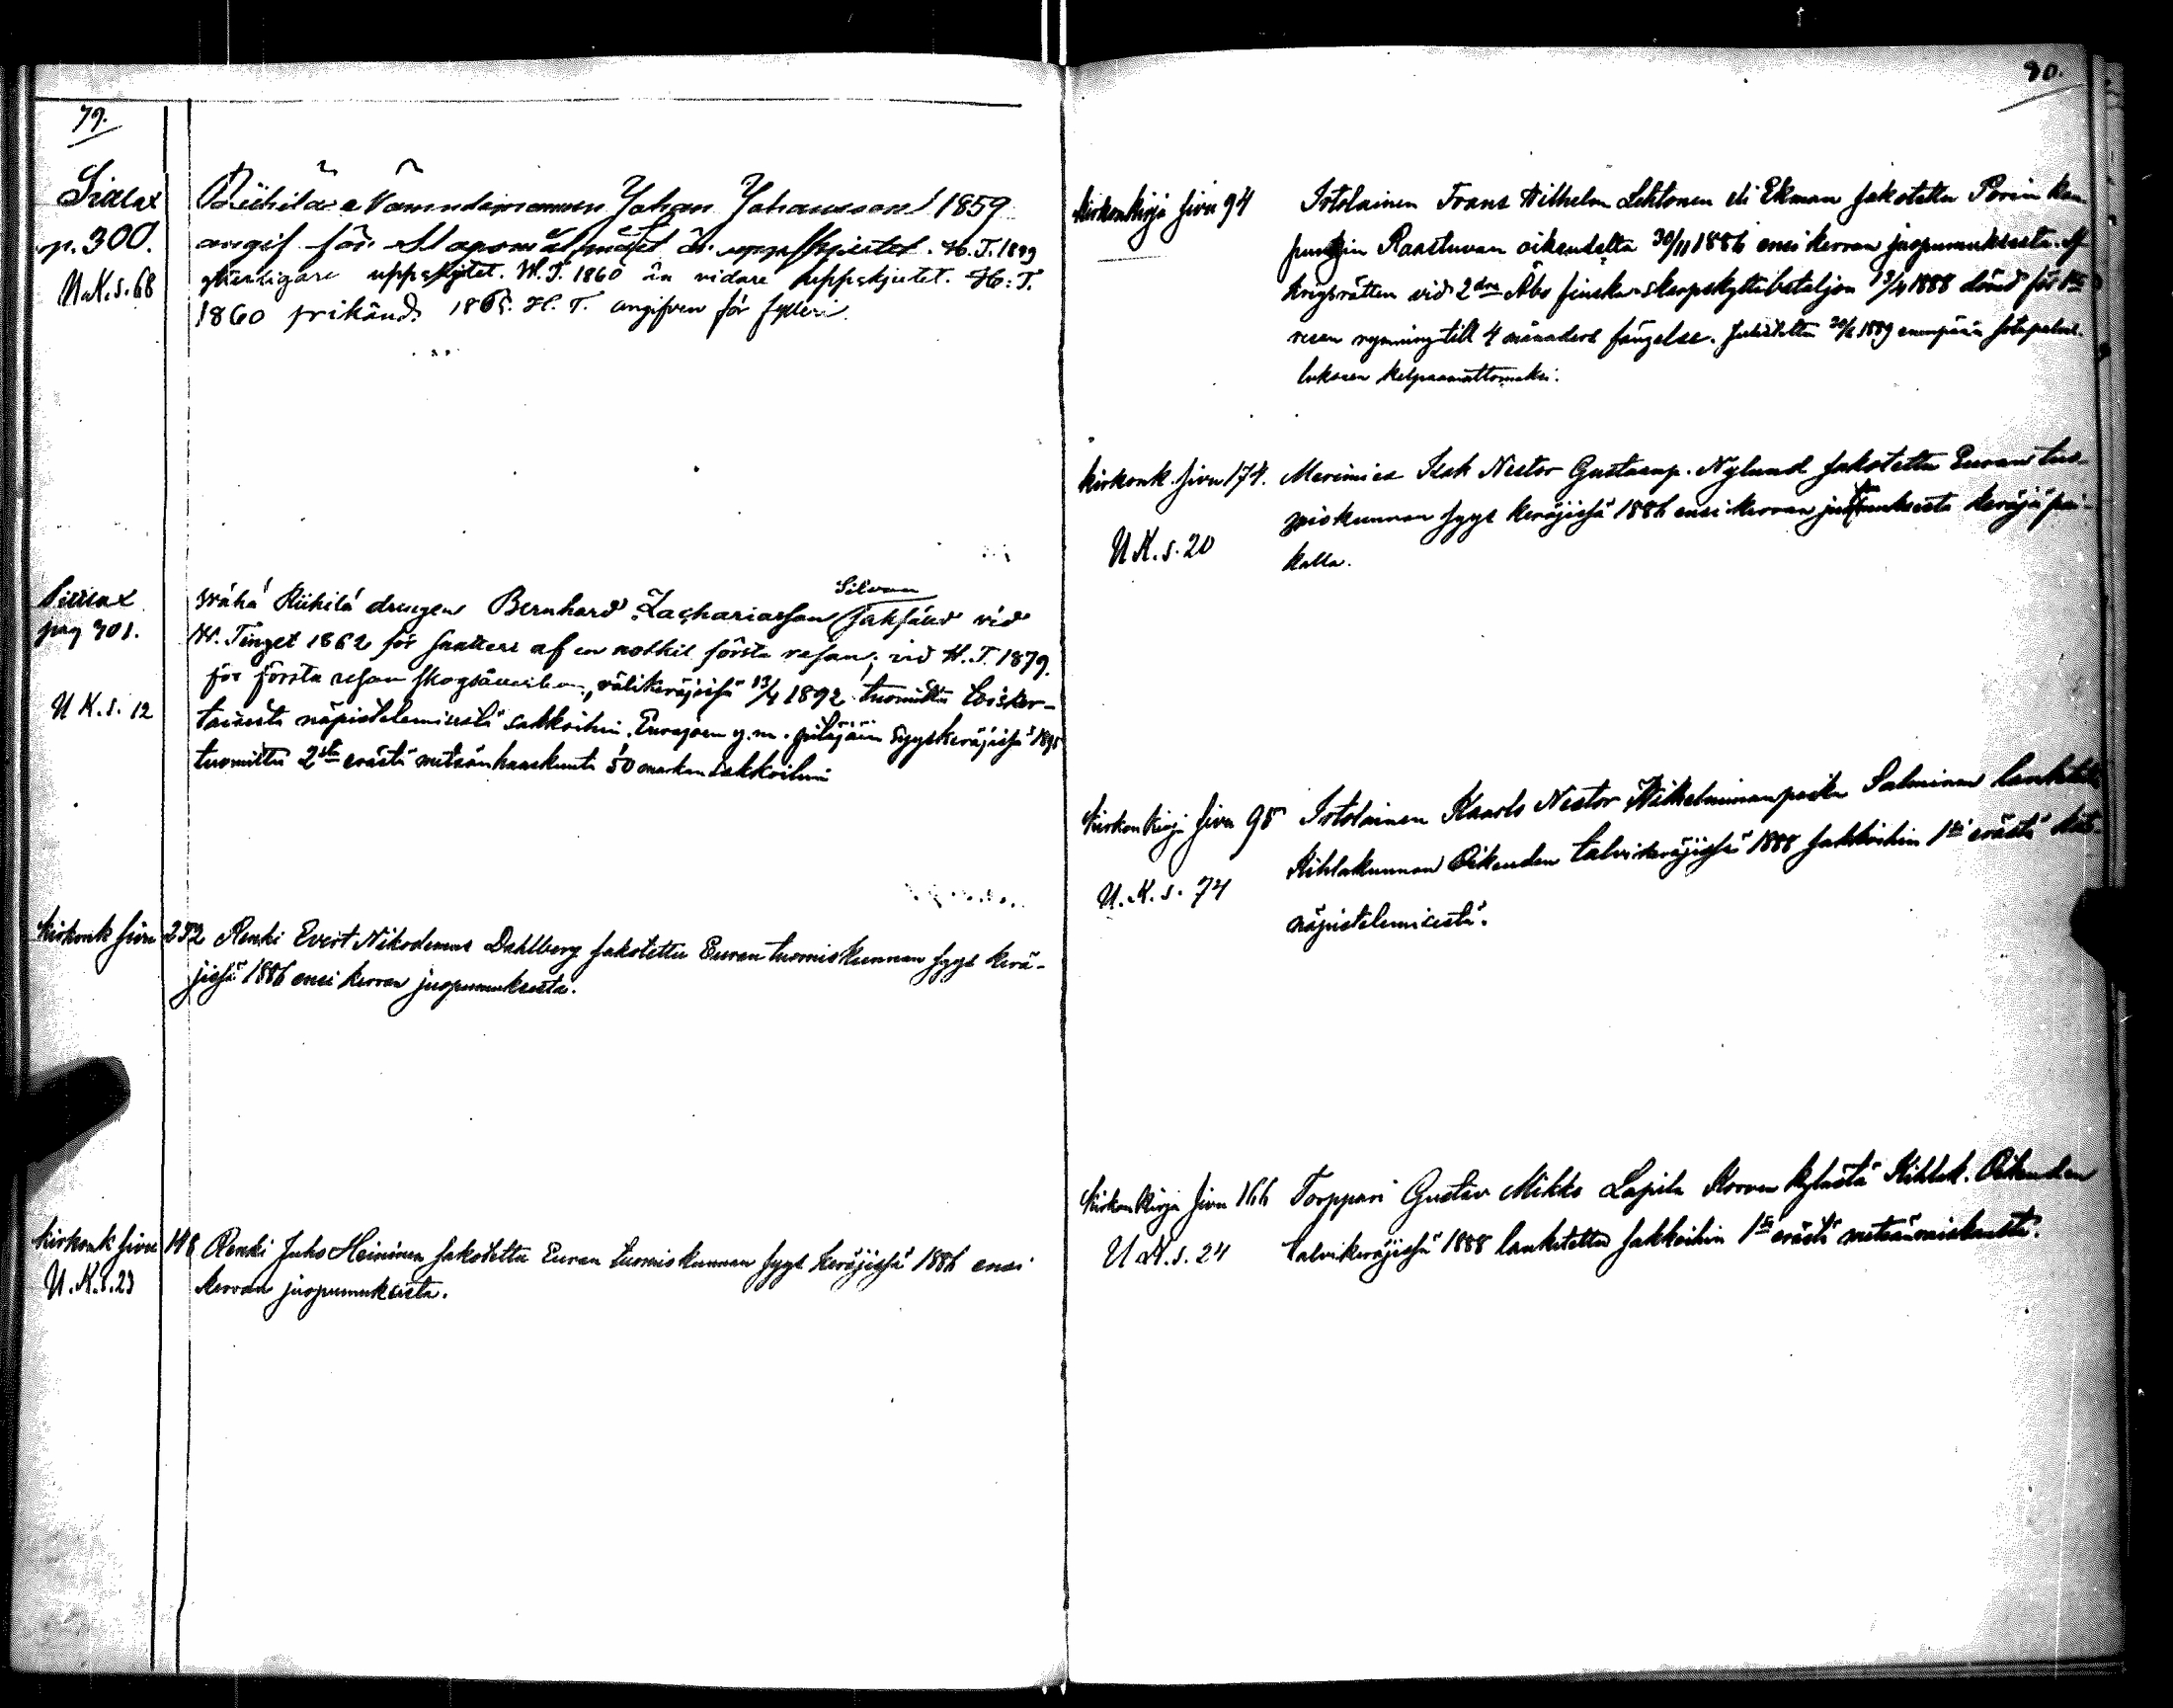 79.
Siexax
p. 300.
U.K.s. 68
Riihilä Nämndemannen Johan Johansson 1859
angif för målet är uppskjutet. H.T. 1859
ytterligare uppskjutet. W.T. 1860 än vidare uppskjutet. H.T.
1860 frikänd. 1865. H.T. angifven för fylleri.
pag 301.
U K. s. 12
Silvan
Wähä Riihilä drengen Bernhard Zachariasson sakfäld vid
W. Tinget 1862 för af en första resan; vid H.T. 1879
för första resan skogsåverkan, välikeräjissä 13/4 1892 tuomittu toisker-
taisesta näpistelemisestä sakkoihin. Eurajoen y.m. pitäjäin syyskeräjissä 1895
tuomittu 2:sta erästä metsänhaaskuusta 50 markan sakkoihin
kirkonk sivu 252 Renki Evert Nikodemus Dahlberg sakotettu Euran tuomiskunnan syys kerä-
jissä 1886 ensi kerran juopumuksesta.
kirkonk sivu 148 Renki Juho Heininen sakotettu Euran tuomiskunnan syys keräjissä 1886 ensi
U.K.s. 23 kerran juopumuksesta.
80.
kirkonkirja sivu 94 Itolainen Frans Wilhelm Lehtonen eli Ekman sakotettu Porin kau-
pungin Raastuvan oikeudelta 30/11 1886 ensi kerran juopumuksesta. Af
krigsrätten vid 2dra Åbo finska skarpskyttebataljon 13/4 1888 dömd för 1sta
resan rymning till 4 månaders fängelse. 1889 enempään sotapalve-
lukseen kelpaamattomaksi.
kirkonk. sivu 174. Merimies Isak Nestor Gustavsp. Nylund sakotettu Euran tuo-
miokunnan syys keräjissä 1886 ensi kerran juopumuksesta keräjä pai-
U K. s. 20 kalla.
kirkonkirja sivu 95 Itolainen Kaarlo Nestor Wilhelminanpoika Salminen langetettu
Kihlakunnan Oikeuden talvikeräjissä 1888 sakkoihin 1si erästä
U. K. s. 74 näpistelemisestä.
kirkonkirja sivu 166 Torppari Gustav Mikko Lapila Korven kylästä Kihlak. Oikeuden
U.K.s. 24 talvikeräjissä 1888 langetettu sakkoihin 1stä erästä